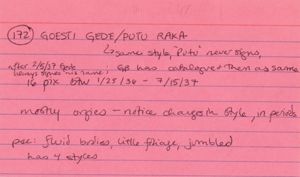 (172) GOESTI GEDE/PUTU RAKA
↳ same style, "Putu" never signs,
after 2/5/37 Gede always signs his name; GB has catalogued them as same
16 pix btw 1/25/36 - 7/15/37
mostly orgies - notice changes in style, in periods
pec: fluid bodies, little foliage, jumbled
has 4 styles